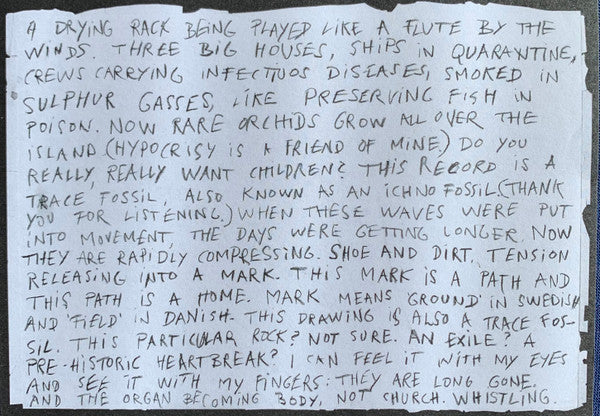 A DRYING RACK BEING PLAYED LIKE A FLUTE BY THE
WINDS. THREE BIG HOUSES, SHIPS IN QUARANTINE,
CREWS CARRYING INFECTIUOS DISEASES, SMOKED IN
SULPHUR GASSES, LIKE PRESERVING FISH IN
POISON. NOW RARE ORCHIDS GROW ALL OVER THE
ISLAND (HYPOCRISY IS A FRIEND OF MINE.) DO YOU
REALLY, REALLY WANT CHILDREN? THIS RECORD IS A
TRACE FOSSIL, ALSO KNOWN AS AN ICHNO FOSSIL (THANK
YOU FOR LISTENING.) WHEN THESE WAVES WERE PUT
INTO MOVEMENT, THE DAYS WERE GETTING LONGER. NOW
THEY ARE RAPIDLY COMPRESSING. SHOE AND DIRT, TENSION
RELEASING INTO A MARK. THIS MARK IS A PATH AND
THIS PATH IS A HOME. MARK MEANS 'GROUND' IN SWEDISH
AND 'FIELD' IN DANISH. THIS DRAWING IS ALSO A TRACE FOS-
SIL. THIS PARTICULAR ROCK? NOT SURE. AN EXILE? A
PRE-HISTORIC HEARTBREAK? I CAN FEEL IT WITH MY EYES
AND SEE IT WITH MY FINGERS: THEY ARE LONG GONE.
AND THE ORGAN BECOMING BODY, NOT CHURCH. WHISTLING.